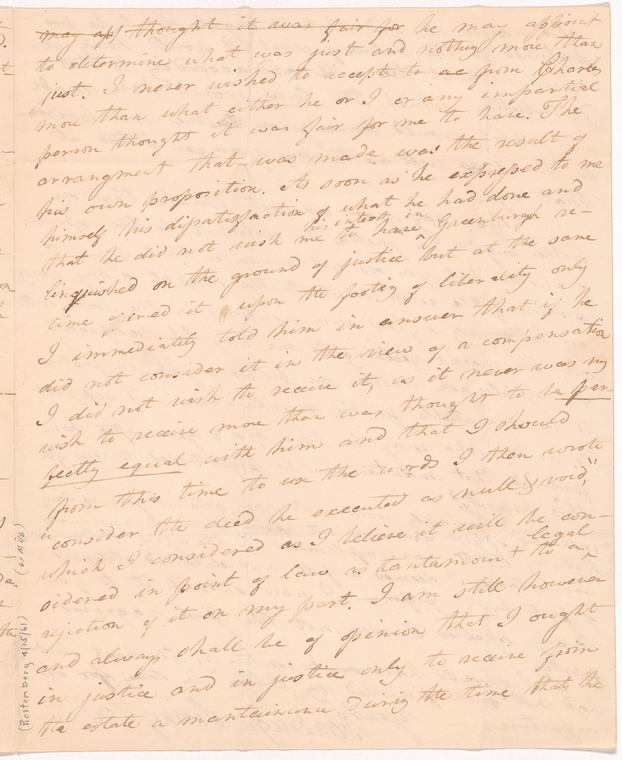 may ap] thought it was fair for he may appoint
to determine what was just and nothing more than
just. I never wished to accept to ac from Charles
more than what either he or I or any impartial
person thought it was fair for me to have. The
arrangment that was made was the result of
his own proposition. As soon as he expressed to me
himself his dissatisfaction of what he had done and
that he did not wish me to have ^ his interest in Greenburgh re-
linquished on the ground of justice but at the same
time offered it upon the footing of liberality only
I immediately told him in answer that if he
did not consider it in the view of a compensation
I did not wish to receive it, as it never was my
wish to receive more than was thought to be per-
fectly equal with him and that I should
from this time to use the words I then wrote
"consider the deed he executed as null & void,"
which I considered as I believe it will be con-
sidered in point of law as tantamount to a ^ legal
rejection of it on my part. I am still however
and always shall be of opinion that I ought
in justice and in justice only to receive from
the estate a maintainance during the time that the
(Rostenberg 4/15/61)
(61M86)